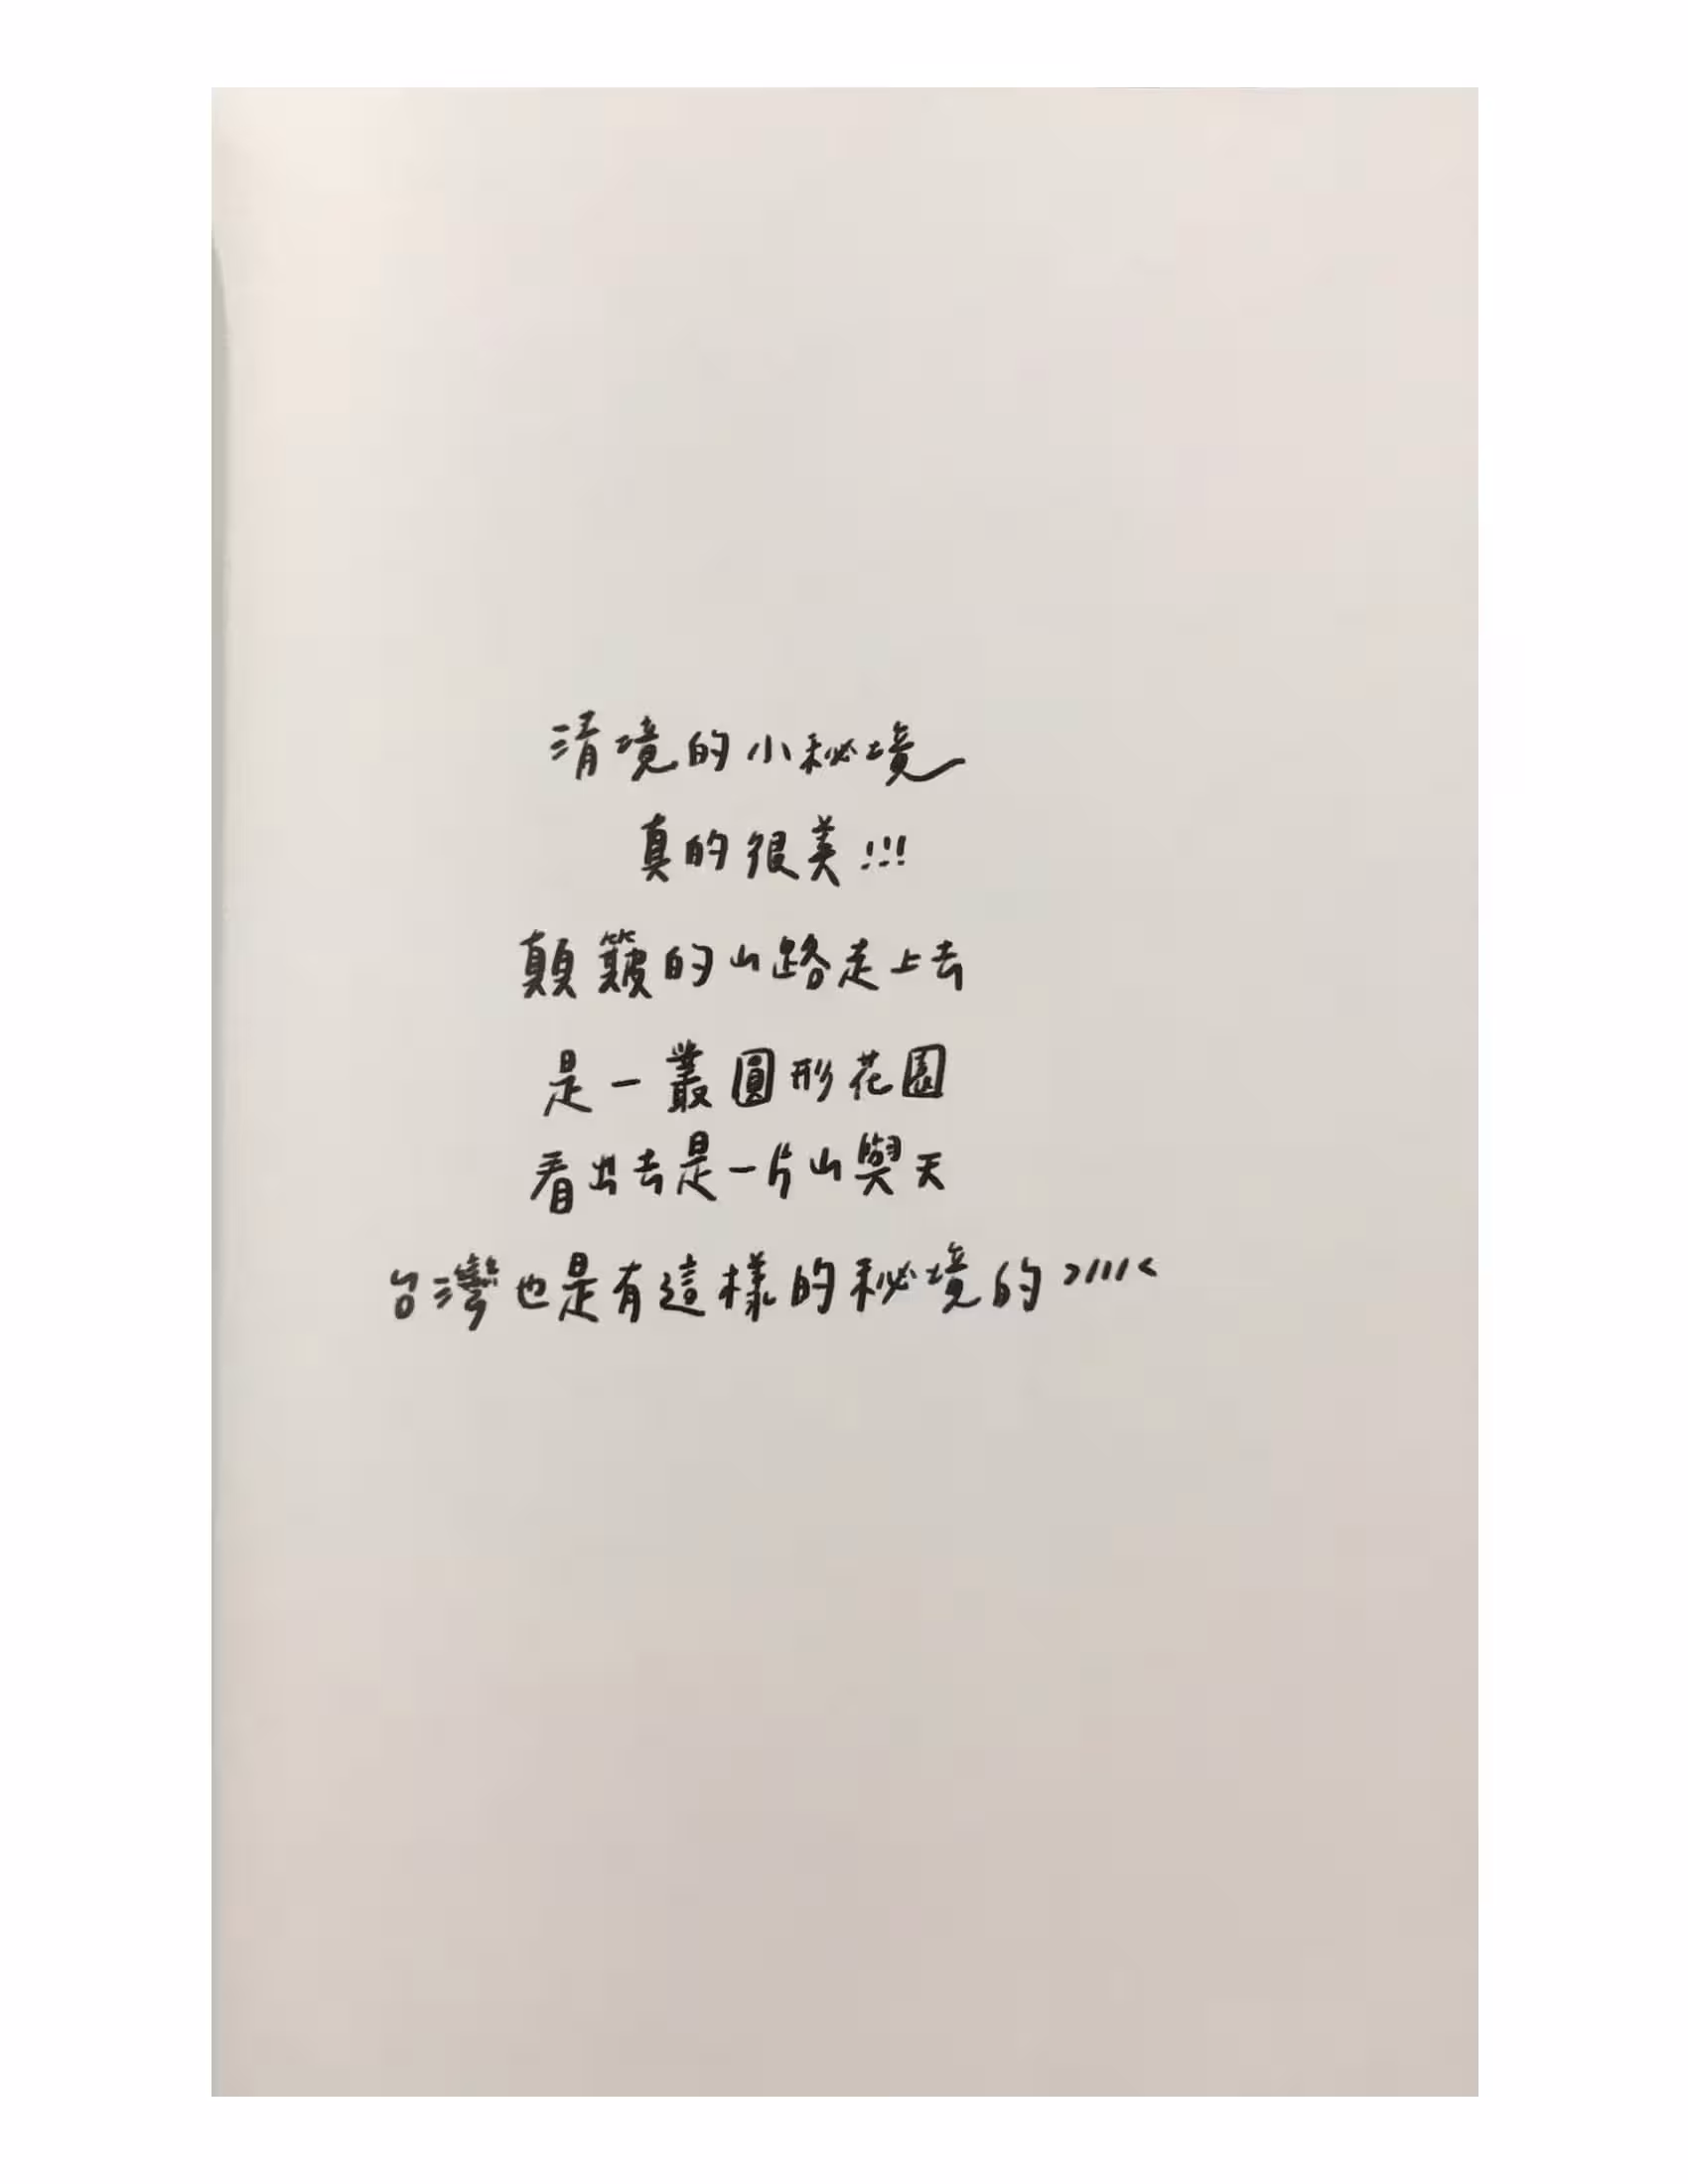 清境的小秘境
真的很美!!!
顛簸的山路走上去
是一叢圓形花園
看出去是一片山與天
台灣也是有這樣的秘境的>///<